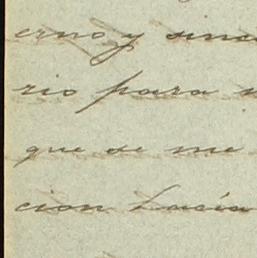 erno y sinc
rio para
que se me
cion hacia